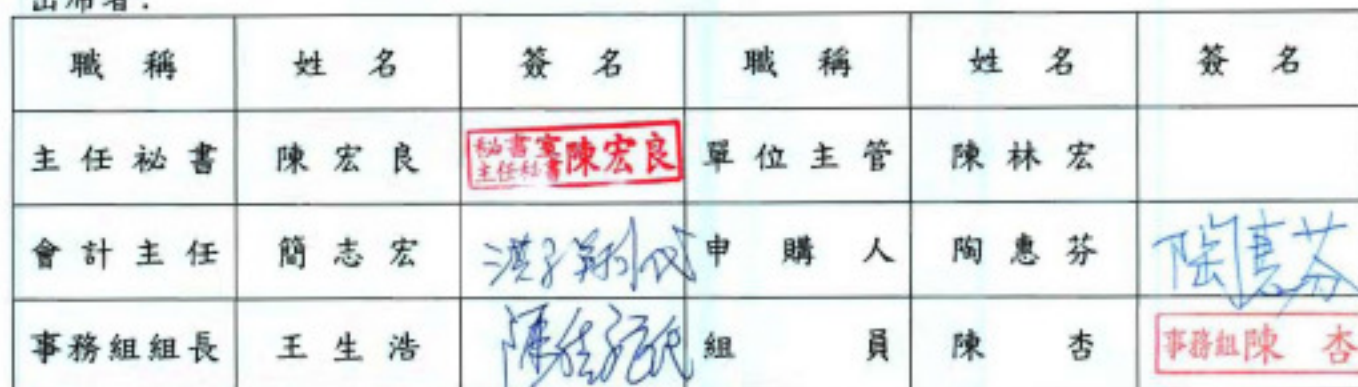 出席者：
職稱 姓名 簽名 職稱 姓名 簽名
主任祕書 陳宏良 祕書室 主任秘書 陳宏良 單位主管 陳林宏
會計主任 簡志宏 申購人 陶惠芬 陶惠芬
事務組組長 王生浩 組員 陳杏 事務組 陳杏